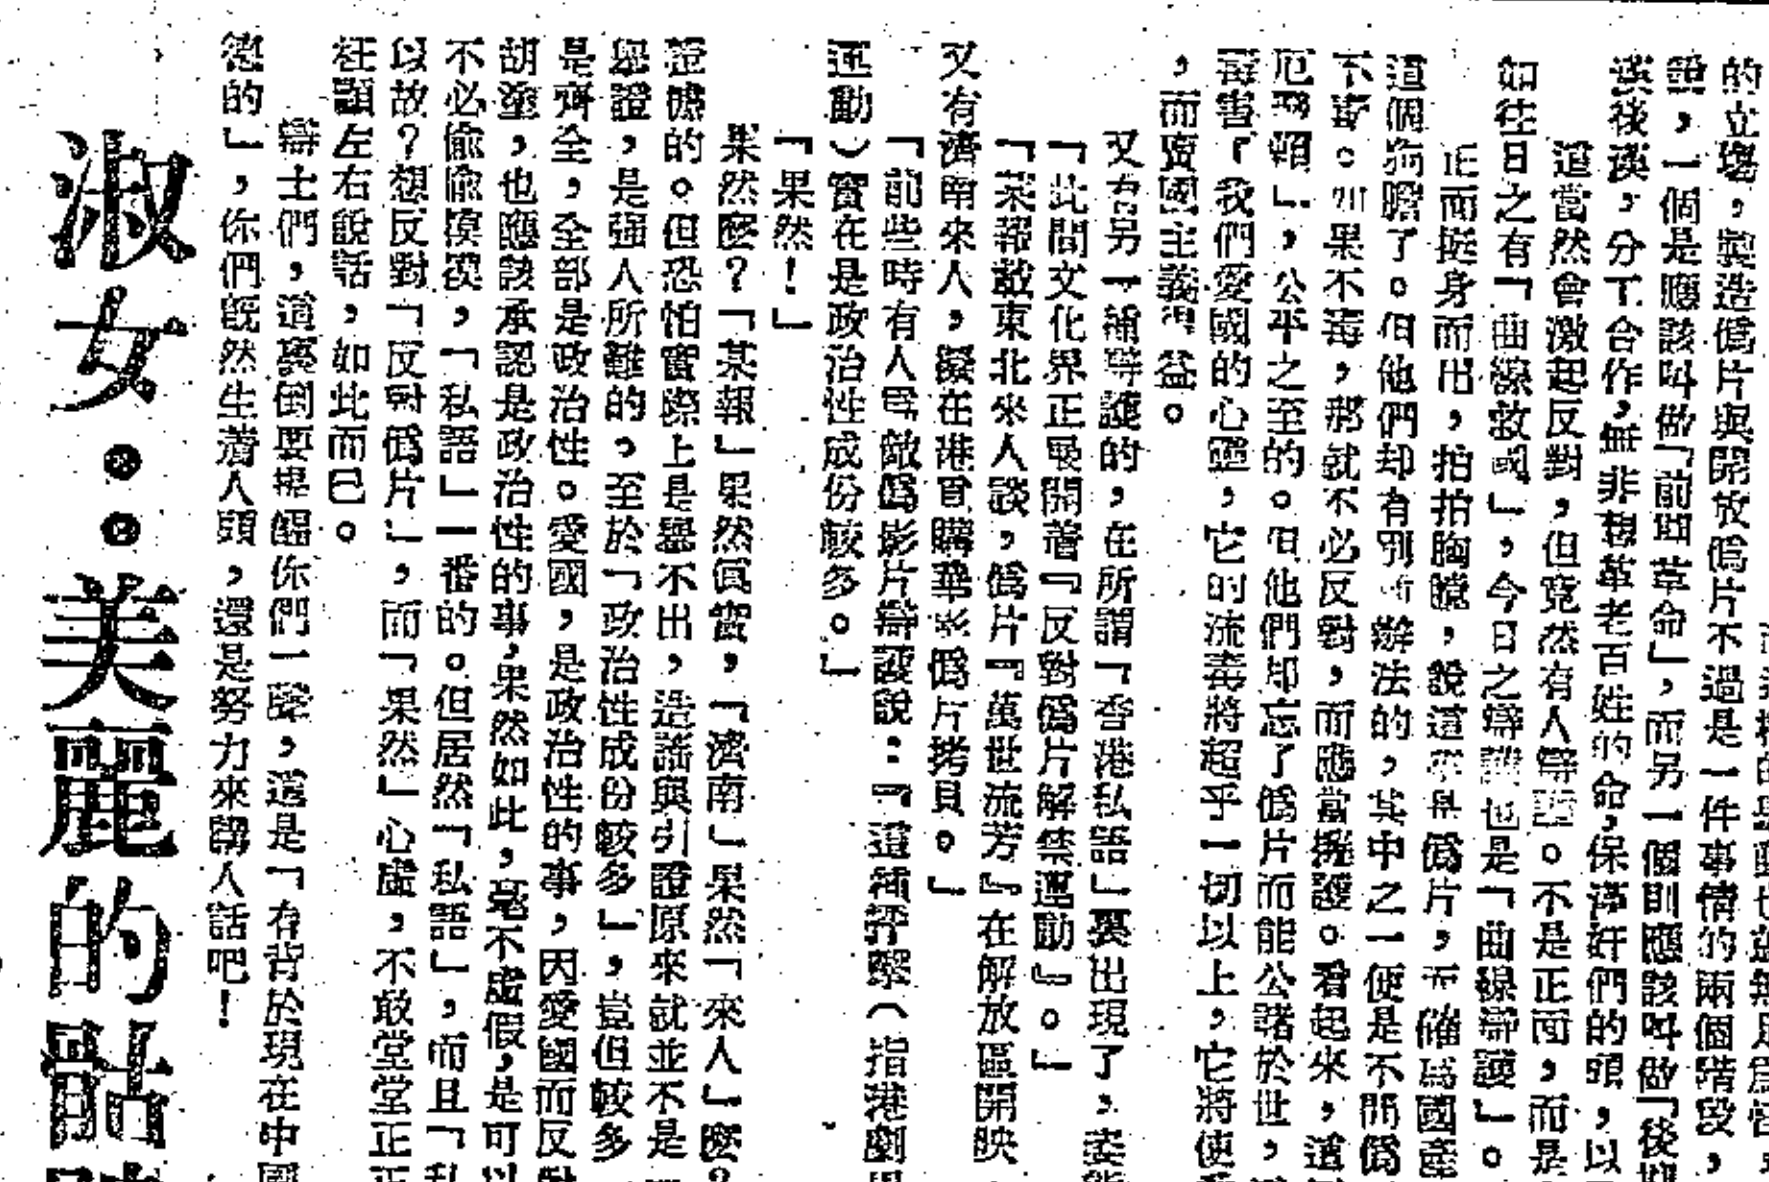 的立場，製造僞片與開放僞片不過是一件事情的兩個階段，
證，一個是應該叫做「前期革命」，而另一個則應該叫做「後期
漢後漢，分工合作，無非想革老百姓的命，保漢奸們的頭，以
這當然會激起反對，但竟然有人辯護。不是正面，而是
如往日之有「曲線救國」，今日之辯護也是「曲線辯護」。
正面挺身而出，拍拍胸膛，說這不是僞片，而
道個狗膽了。但他們却有別的辦法的，其中之一便是不
不毒。如果不毒，那就不必反對，而應當擁護。看起來，這
」，公平之至的。但他們却忘了僞片而能公諸於世，
毒害『我們愛國的心靈，它的流毒將超乎一切以上，它將使
，而賣國主義得益。
又有另一種辯護的，在所謂「香港私語」裏出現了，姿態
「此間文化界正展開着『反對僞片解禁運動』。」
「某報載東北來人談，僞片『萬世流芳』在解放區開映
又有濟南來人，擬在港買購華影僞片拷貝。」
「前些時有人爲敵僞影片辯護說：『這種抨擊（指港劇
運動）實在是政治性成份較多。」
「果然！」
果然麽？「某報」果然眞實，「濟南」果然「來人」麽？
證據的。但恐怕實際上是舉不出，造謠與引證原來就並不是
舉證，是强人所難的，至於「政治性成份較多」，豈但較多
是齊全，全部是政治性。愛國，是政治性的事，因愛國而反對
胡塗，也應該承認是政治性的事，果然如此，毫不虛假，是可以
不必偷偷摸摸，「私語」一番的。但居然「私語」，而且「私
以故？想反對「反對僞片」，而「果然」心虛，不敢堂堂正正
枉顧左右說話，如此而已。
辯士們，這裏倒要提醒你們一聲，這是「有背於現在中國
德的」，你們旣然生着人頭，還是努力來講人話吧！
淑女··美麗的骷